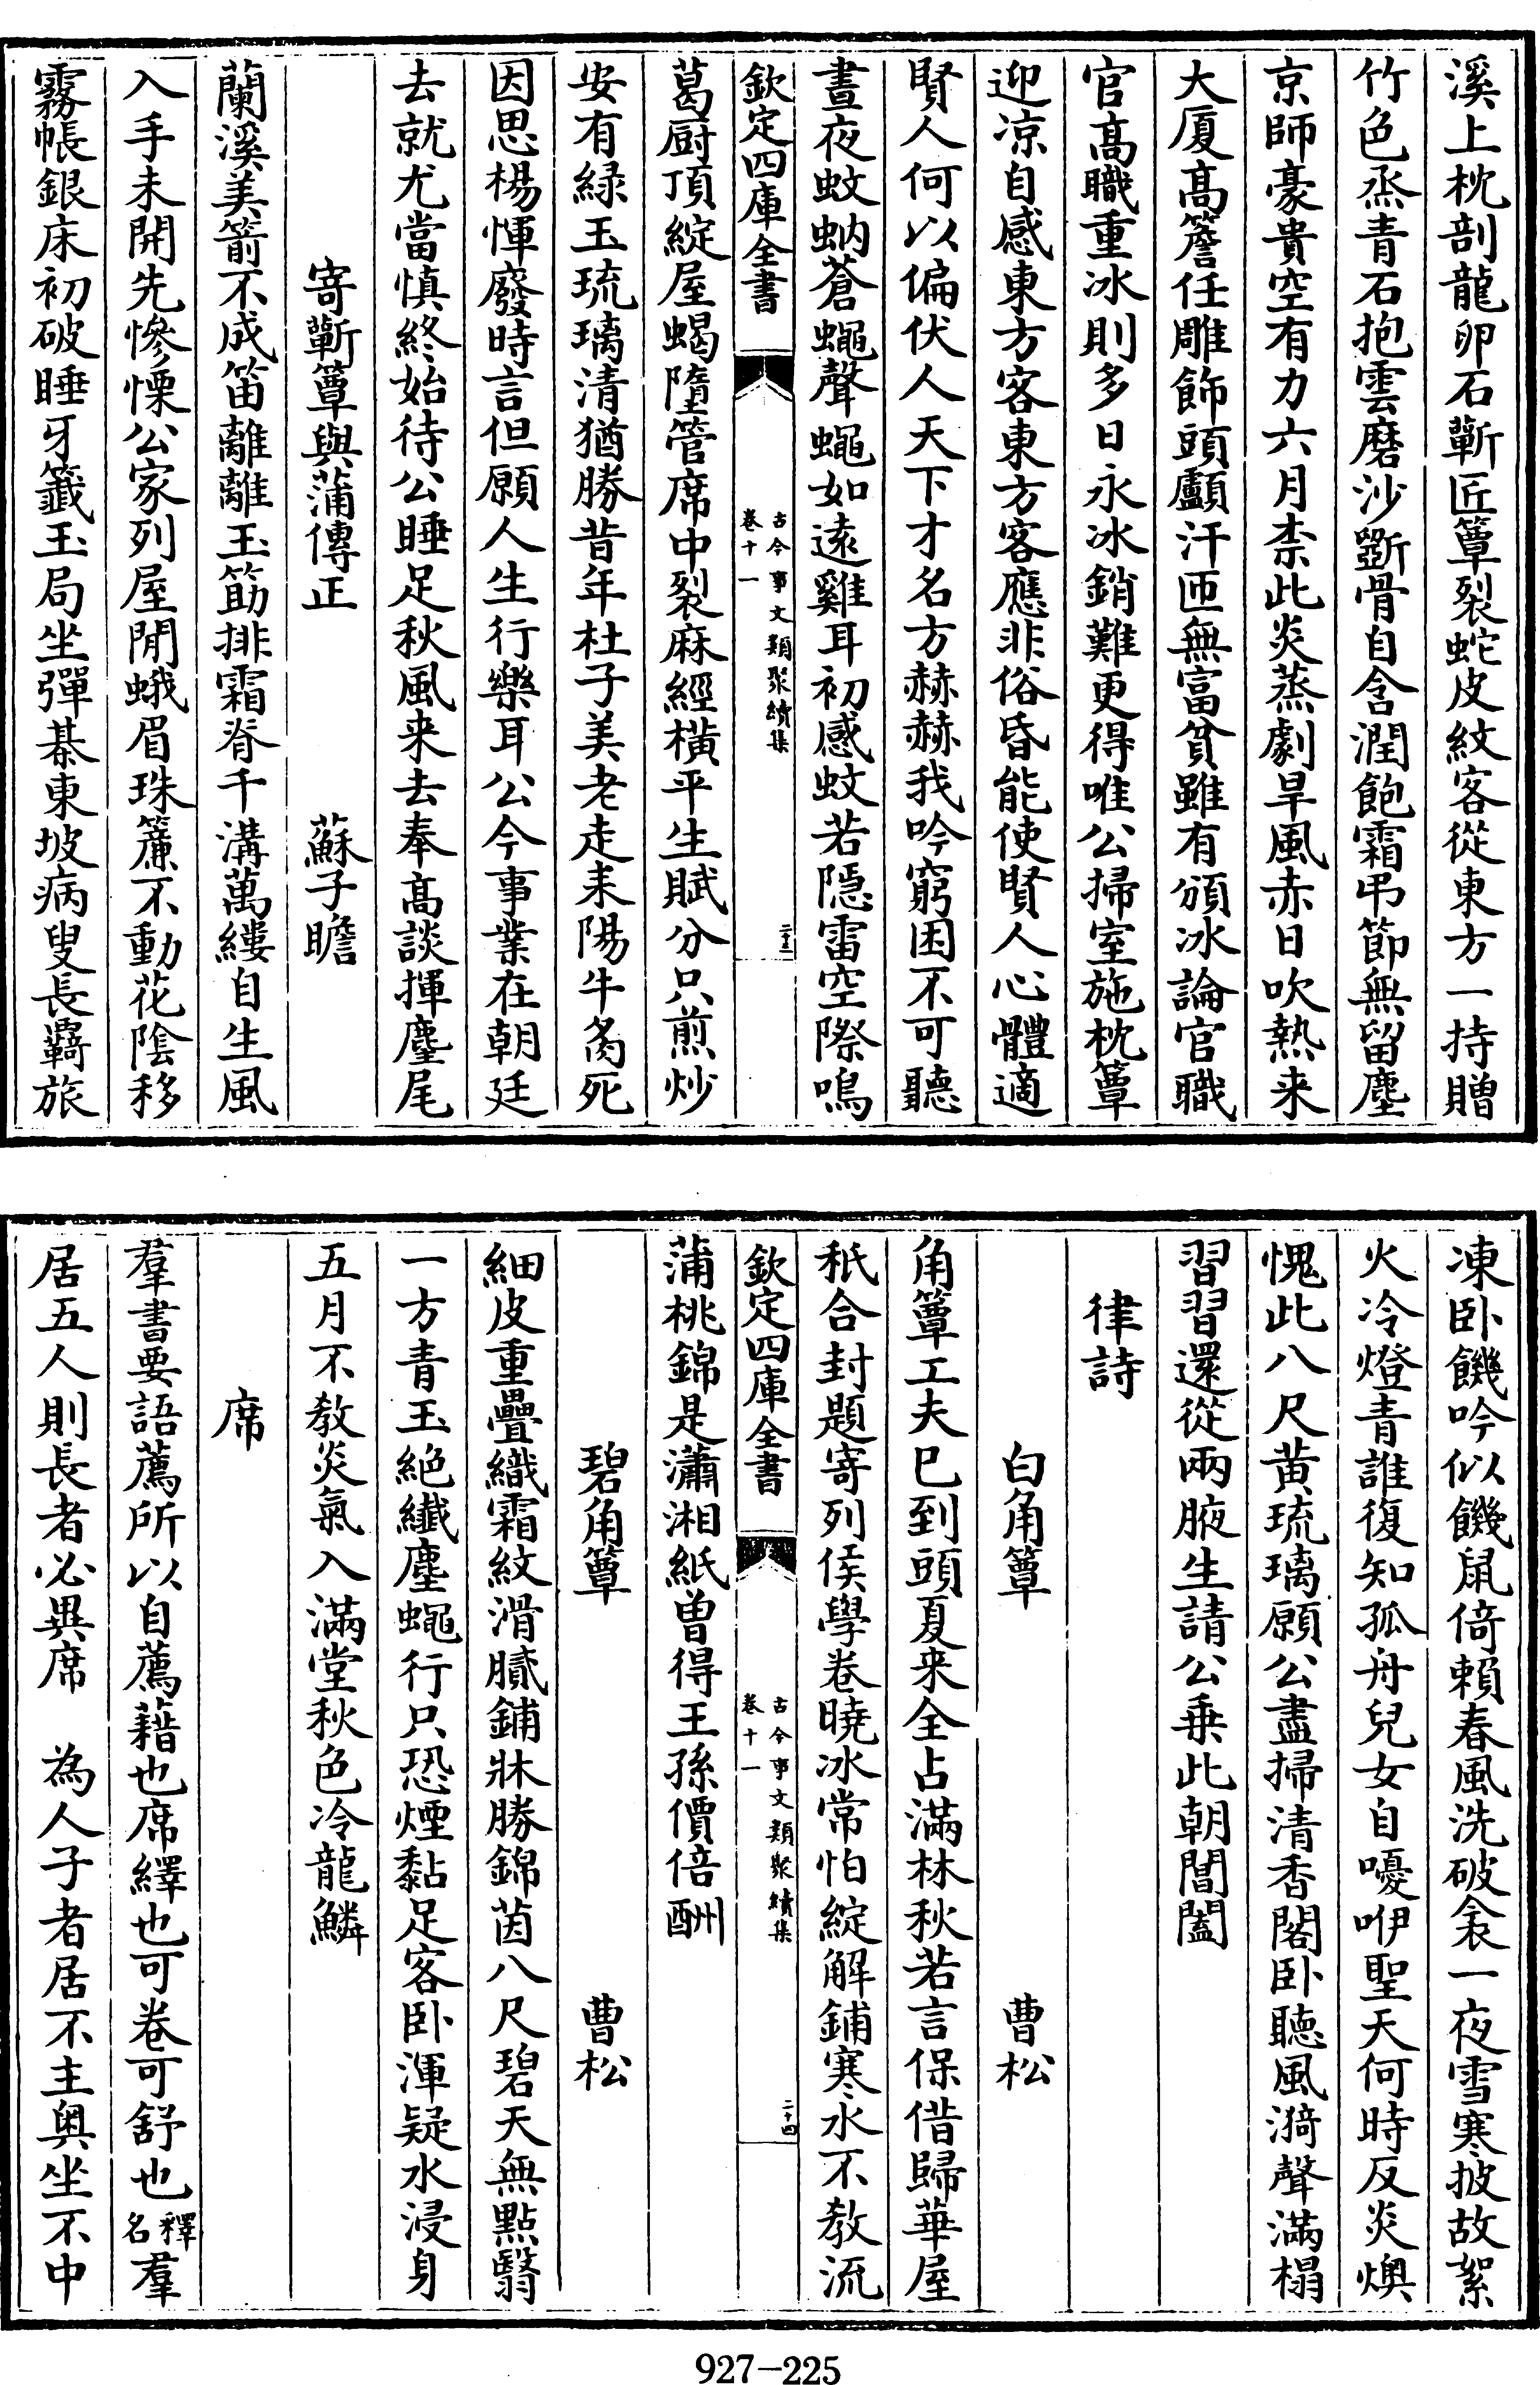 溪上枕剖龍卵石蘄匠簟裂蛇皮紋客從東方一持贈
竹色烝青石抱雲磨沙斵骨自含潤飽霜弔節無留塵
京師豪貴空有力六月柰此炎蒸劇旱風赤日吹熱来
大厦髙簷任雕飾頭顱汗匝無富貧雖有頒冰論官職
官髙職重冰則多日永冰銷難更得唯公掃室施枕簟
迎凉自感東方客東方客應非俗昏能使賢人心體適
賢人何以偏伏人天下才名方赫赫我吟窮困不可聽
晝夜蚊蚋蒼蠅聲蠅如遠雞耳初感蚊若隠雷空際鳴
欽定四庫全書
古今事文類聚續集
卷十一
二十三
葛厨頂綻屋蝎墮管席中裂麻經横平生賦分只煎炒
安有緑玉琉璃清猶勝昔年杜子美老走耒陽牛炙死
因思楊惲廢時言但願人生行樂耳公今事業在朝廷
去就尤當慎終始待公睡足秋風来去奉髙談揮麈尾
寄蘄簟與蒲傳正　蘇子瞻
蘭溪美箭不成笛離離玉筯排霜脊千溝萬縷自生風
入手未開先惨慄公家列屋閒蛾眉珠簾不動花陰移
霧帳銀床初破睡牙籤玉局坐彈棊東坡病叟長羇旅
凍卧饑吟似饑鼠倚賴春風洗破衾一夜雪寒披故絮
火冷燈青誰復知孤舟兒女自嚘咿聖天何時反炎燠
愧此八尺黄琉璃願公盡掃清香閣卧聽風漪聲滿榻
習習還從兩腋生請公乗此朝閶闔
律詩
白角簟　曹松
角簟工夫已到頭夏来全占滿林秋若言保借歸華屋
秖合封題寄列侯學卷曉冰常怕綻解鋪寒水不教流
欽定四庫全書
古今事文類聚續集
卷十一
二十四
蒲桃錦是瀟湘紙曽得王孫價倍酬
碧角簟　曹松
細皮重疊織霜紋滑膩鋪牀勝錦茵八尺碧天無點翳
一方青玉絶纖塵蠅行只恐煙黏足客卧渾疑水浸身
五月不教炎氣入滿堂秋色冷龍鱗
席
羣書要語薦所以自薦藉也席繹也可卷可舒也釋名羣
居五人則長者必異席　為人子者居不主奥坐不中
927-225